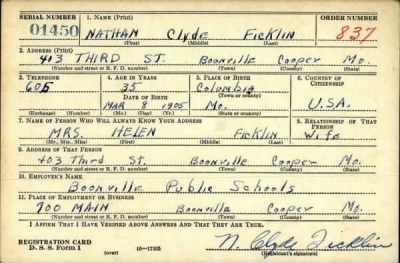 SERIAL NUMBER 1. NAME (Print) ORDER NUMBER
01450 NATHAN Clyde Ficklin 837
(First) (Middle) (Last)
2. ADDRESS (Print)
403 THIRD ST. Boonville Cooper Mo.
(Number and street or R. F. D. number) (Town) (County) (State)
3. TELEPHONE 4. AGE IN YEARS 5. PLACE OF BIRTH 6. COUNTRY OF CITIZENSHIP
605 35 Columbia
DATE OF BIRTH (Town or county)
MAR 8 1905 Mo. U.S.A.
(Exchange) (Number) (Mo.) (Day) (Yr.) (State or country)
7. NAME OF PERSON WHO WILL ALWAYS KNOW YOUR ADDRESS 8. RELATIONSHIP OF THAT PERSON
MRS. HELEN Ficklin Wife
(Mr., Mrs., Miss) (First) (Middle) (Last)
9. ADDRESS OF THAT PERSON
403 Third St. Boonville Cooper Mo.
(Number and street or R. F. D. number) (Town) (County) (State)
10. EMPLOYER'S NAME
Boonville Public Schools
11. PLACE OF EMPLOYMENT OR BUSINESS
700 MAIN Boonville Cooper Mo.
(Number and street or R. F. D. number) (Town) (County) (State)
I AFFIRM THAT I HAVE VERIFIED ABOVE ANSWERS AND THAT THEY ARE TRUE.
REGISTRATION CARD
D. S. S. Form 1 (over) 16-17105 N. Clyde Ficklin
(Registrant's signature)